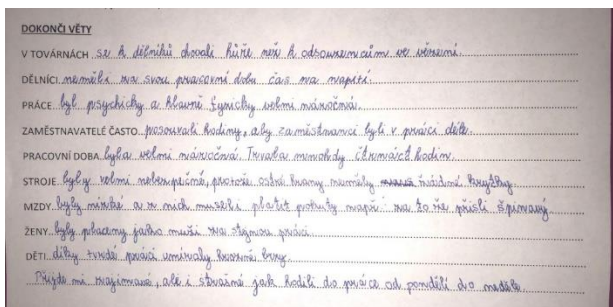 DOKONČI VĚTY
V TOVÁRNÁCH se k dělníků chovali hůře než k odsouzencům ve vězení.
DĚLNÍCI neměli za svou pracovní dobu čas na napití.
PRÁCE byl psychicky a hlavně fyzicky velmi náročná.
ZAMĚSTNAVATELÉ ČASTO posouvali hodiny, aby zaměstnanci byli v práci déle.
PRACOVNÍ DOBA byla velmi náročná. Trvala mimohdy čtrnáct hodin.
STROJE byly velmi nebezpečné, protože ostré hrany neměly žádné krytky.
MZDY byly nízké a z nich museli platit pokuty např. za to že přišli špinavý.
ŽENY byly placeny jako muži za stejnou práci.
DĚTI díky tvrdé práci umíraly hrozně brzy.
Přijde mi zajímavé, ale i strašné jak hodili do práce od pondělí do neděle.